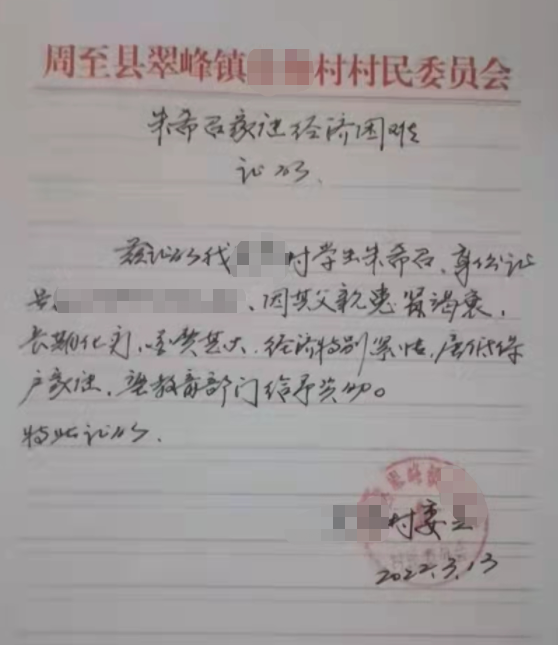 周至县翠峰镇村村民委员会
朱希召家庭经济困难
证明、
兹证明我村学生朱希召、身份证
号、因其父亲患肾竭衰，
长期化疗，花费甚大、经济特别紧张，属低保
户家庭，望教育部门给予资助。
特此证明、
村委会
2022.3.13